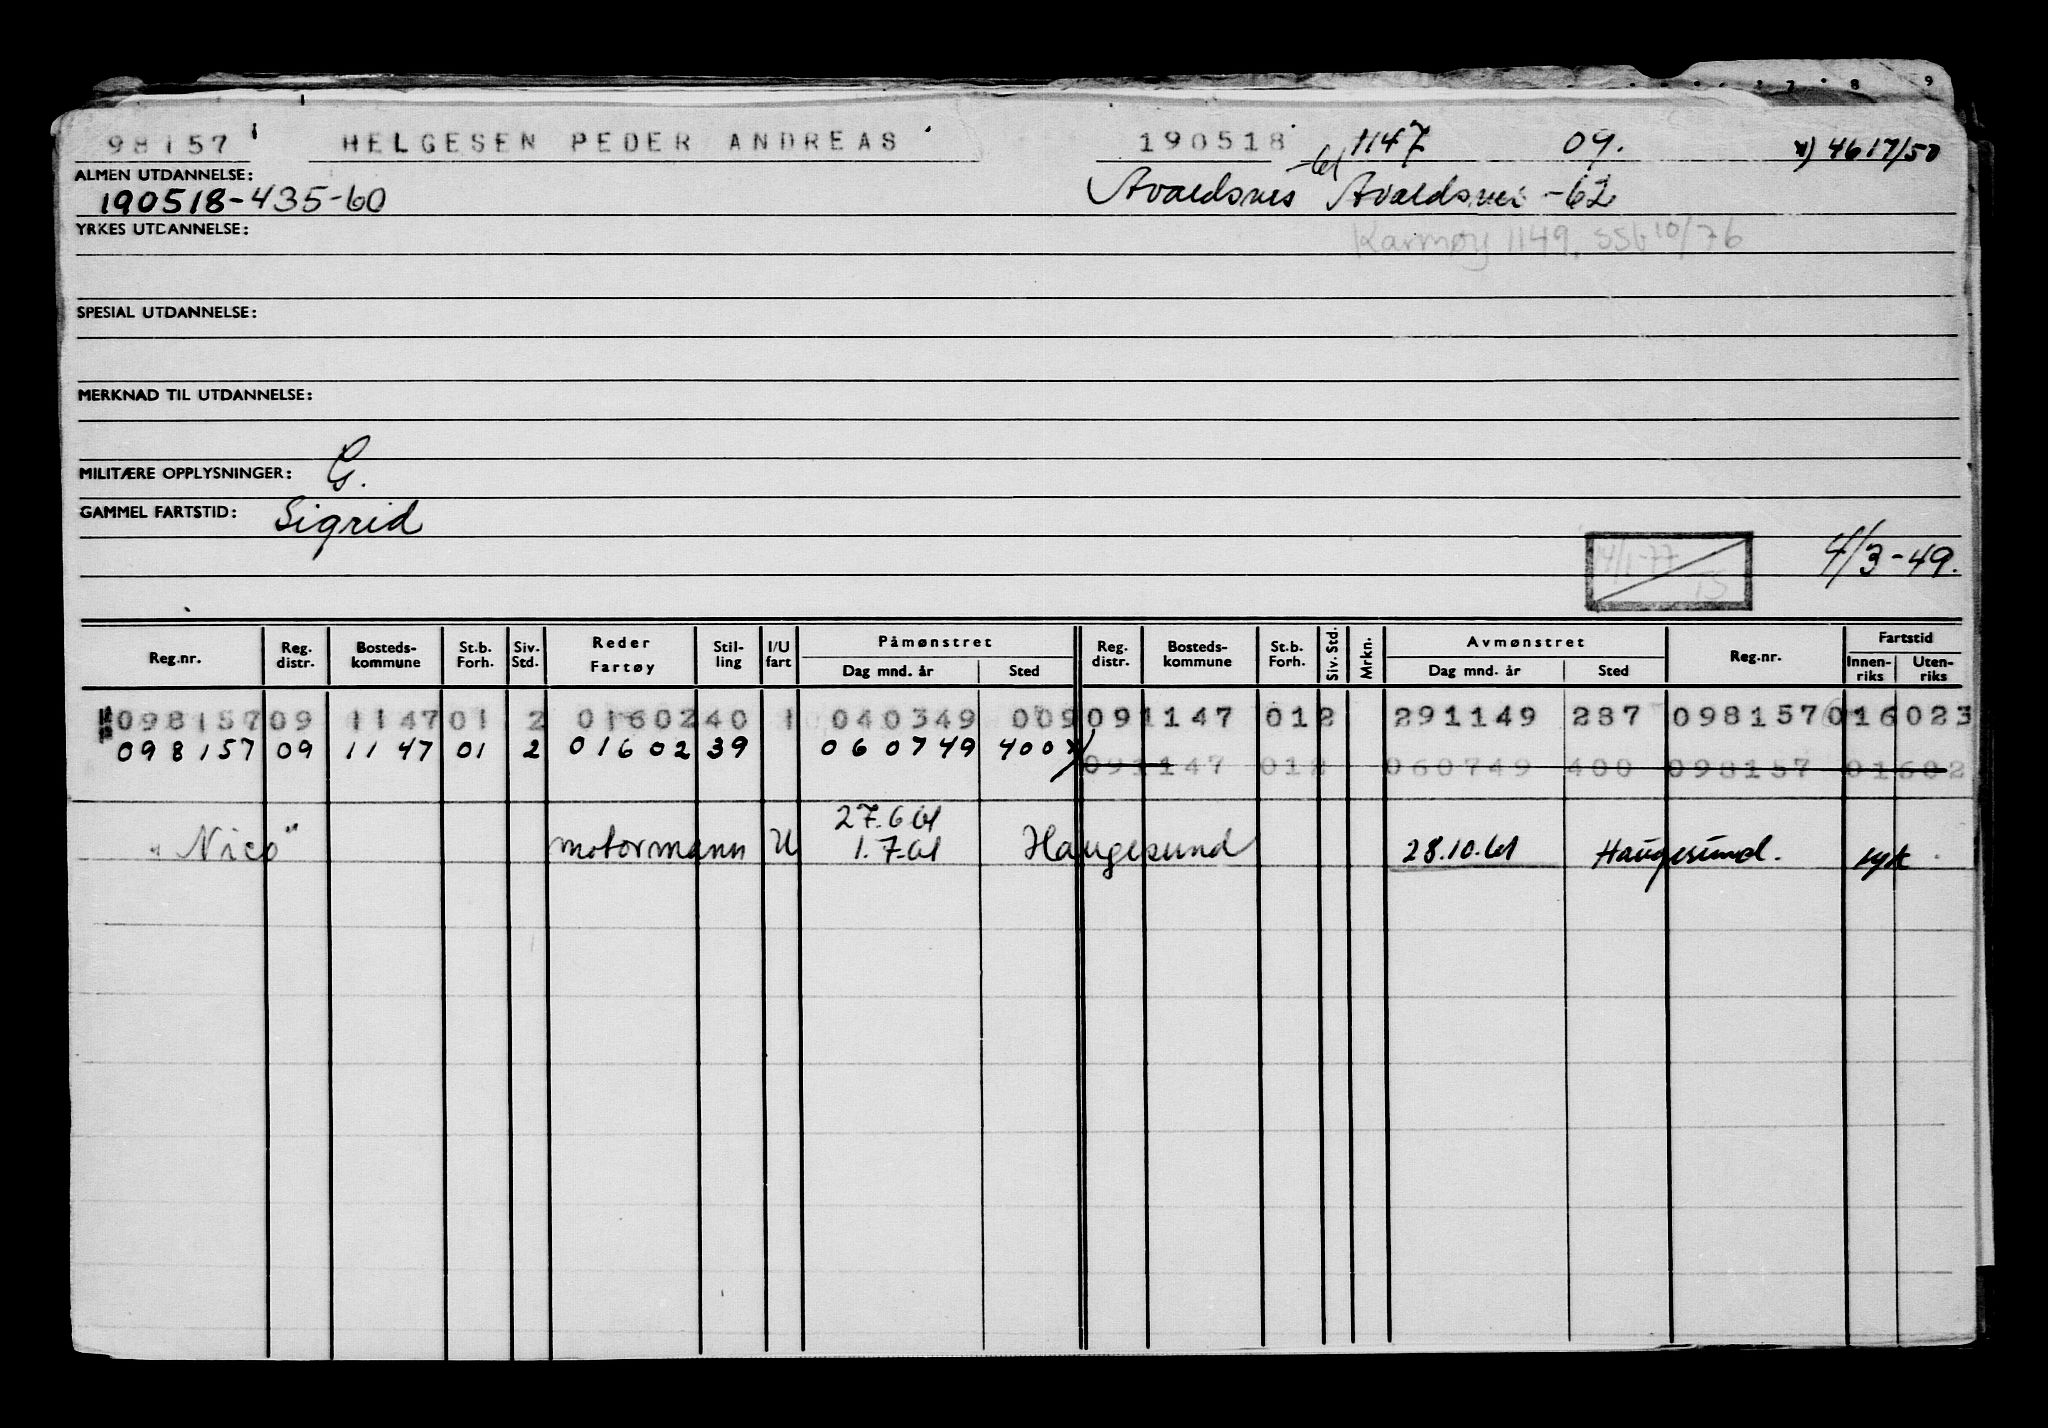 7 8 9
98157 HELGESEN PEDER ANDREAS 190518 1147 09. x) 4617/50
ALMEN UTDANNELSE:
190518-435-60 Avaldsnes -61 Avaldsnes -62
YRKES UTDANNELSE: Karmøy 1149. SSB 10/76
SPESIAL UTDANNELSE:
MERKNAD TIL UTDANNELSE:
MILITÆRE OPPLYSNINGER: G.
GAMMEL FARTSTID: Sigrid
14/1-77 TS 4/3-49.
Reg.nr. Reg. distr. Bosteds- kommune St.b. Forh. Siv. Std. Reder Fartøy Stil- ling I/U fart Påmønstret Dag mnd. år Sted Reg. distr. Bosteds- kommune St.b. Forh. Siv. Std. Mrkn. Avmønstret Dag mnd. år Sted Reg.nr. Fartstid Innen- riks Uten- riks
098157 09 1147 01 2 01602 40 1 040349 009 09 1147 01 2 291149 287 098157 01602 3
098157 09 1147 01 2 01602 39 060749 400 x)
09 1147 01 2 060749 400 098157 01602
27.6.61
"Nico" motormann U 1.7.61 Haugesund 28.10.61 Haugesund. syk